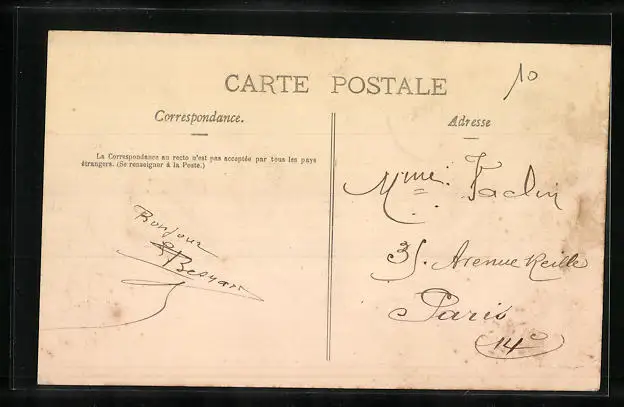 CARTE POSTALE
10
Correspondance.
Adresse
La Correspondance au recto n'est pas acceptée par tous les pays
étrangers. (Se renseigner à la Poste.)
Bonjour
Mme
Avenue Reille
Paris
14e